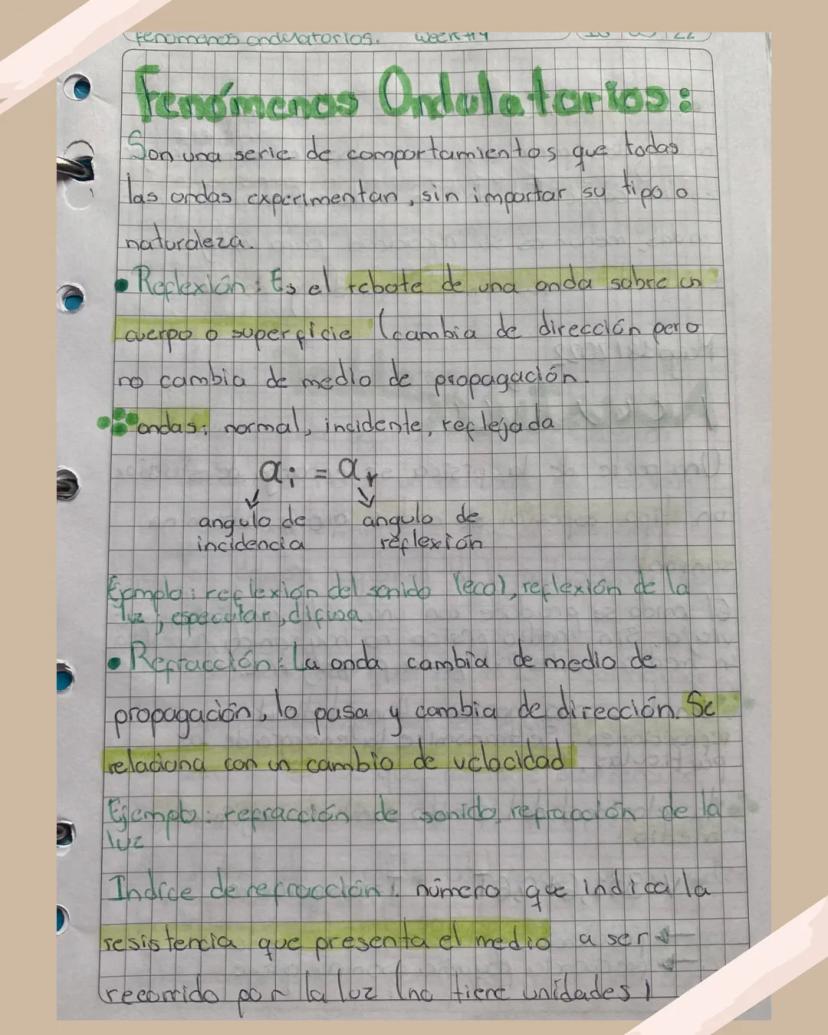 Fenomenos ondulatorios. Week #4
Fenómenos Ondulatorios:
Son una serie de comportamientos que todas
las ondas experimentan, sin importar su tipo o
naturaleza.
• Reflexión: Es el rebote de una onda sobre un
cuerpo o superficie (cambia de dirección pero
no cambia de medio de propagación.
ondas: normal, incidente, reflejada
αi = αr
angulo de angulo de
incidencia reflexión
Ejemplo: reflexión del sonido (eco), reflexión de la
luz; especular, difusa
• Refracción: La onda cambia de medio de
propagación, lo pasa y cambia de dirección. Se
relaciona con un cambio de velocidad
Ejemplo: refracción de sonido, refracción de la
luz
Indice de refracción: número que indica la
resistencia que presenta el medio a ser
recorrido por la luz (no tiene unidades)